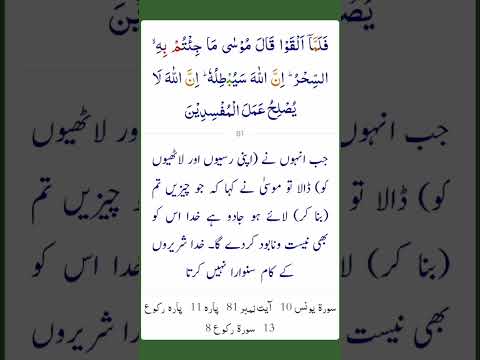 فَلَمَّاۤ اَلْقَوْا قَالَ مُوْسٰى مَا جِئْتُمْ بِهِۙ
السِّحْرُ ؕ اِنَّ اللّٰهَ سَيُبْطِلُهٗ ؕ اِنَّ اللّٰهَ لَا
يُصْلِحُ عَمَلَ الْمُفْسِدِيْنَ
81
جب انہوں نے (اپنی رسیوں اور لاٹھیوں
کو) ڈالا تو موسیٰ نے کہا کہ جو چیزیں تم
(بنا کر) لائے ہو جادو ہے خدا اس کو
بھی نیست ونابود کردے گا۔ خدا شریروں
کے کام سنوارا نہیں کرتا
سورة یونس 10 آیت نمبر 81 پارہ 11 پارہ رکوع
13 سورة رکوع 8